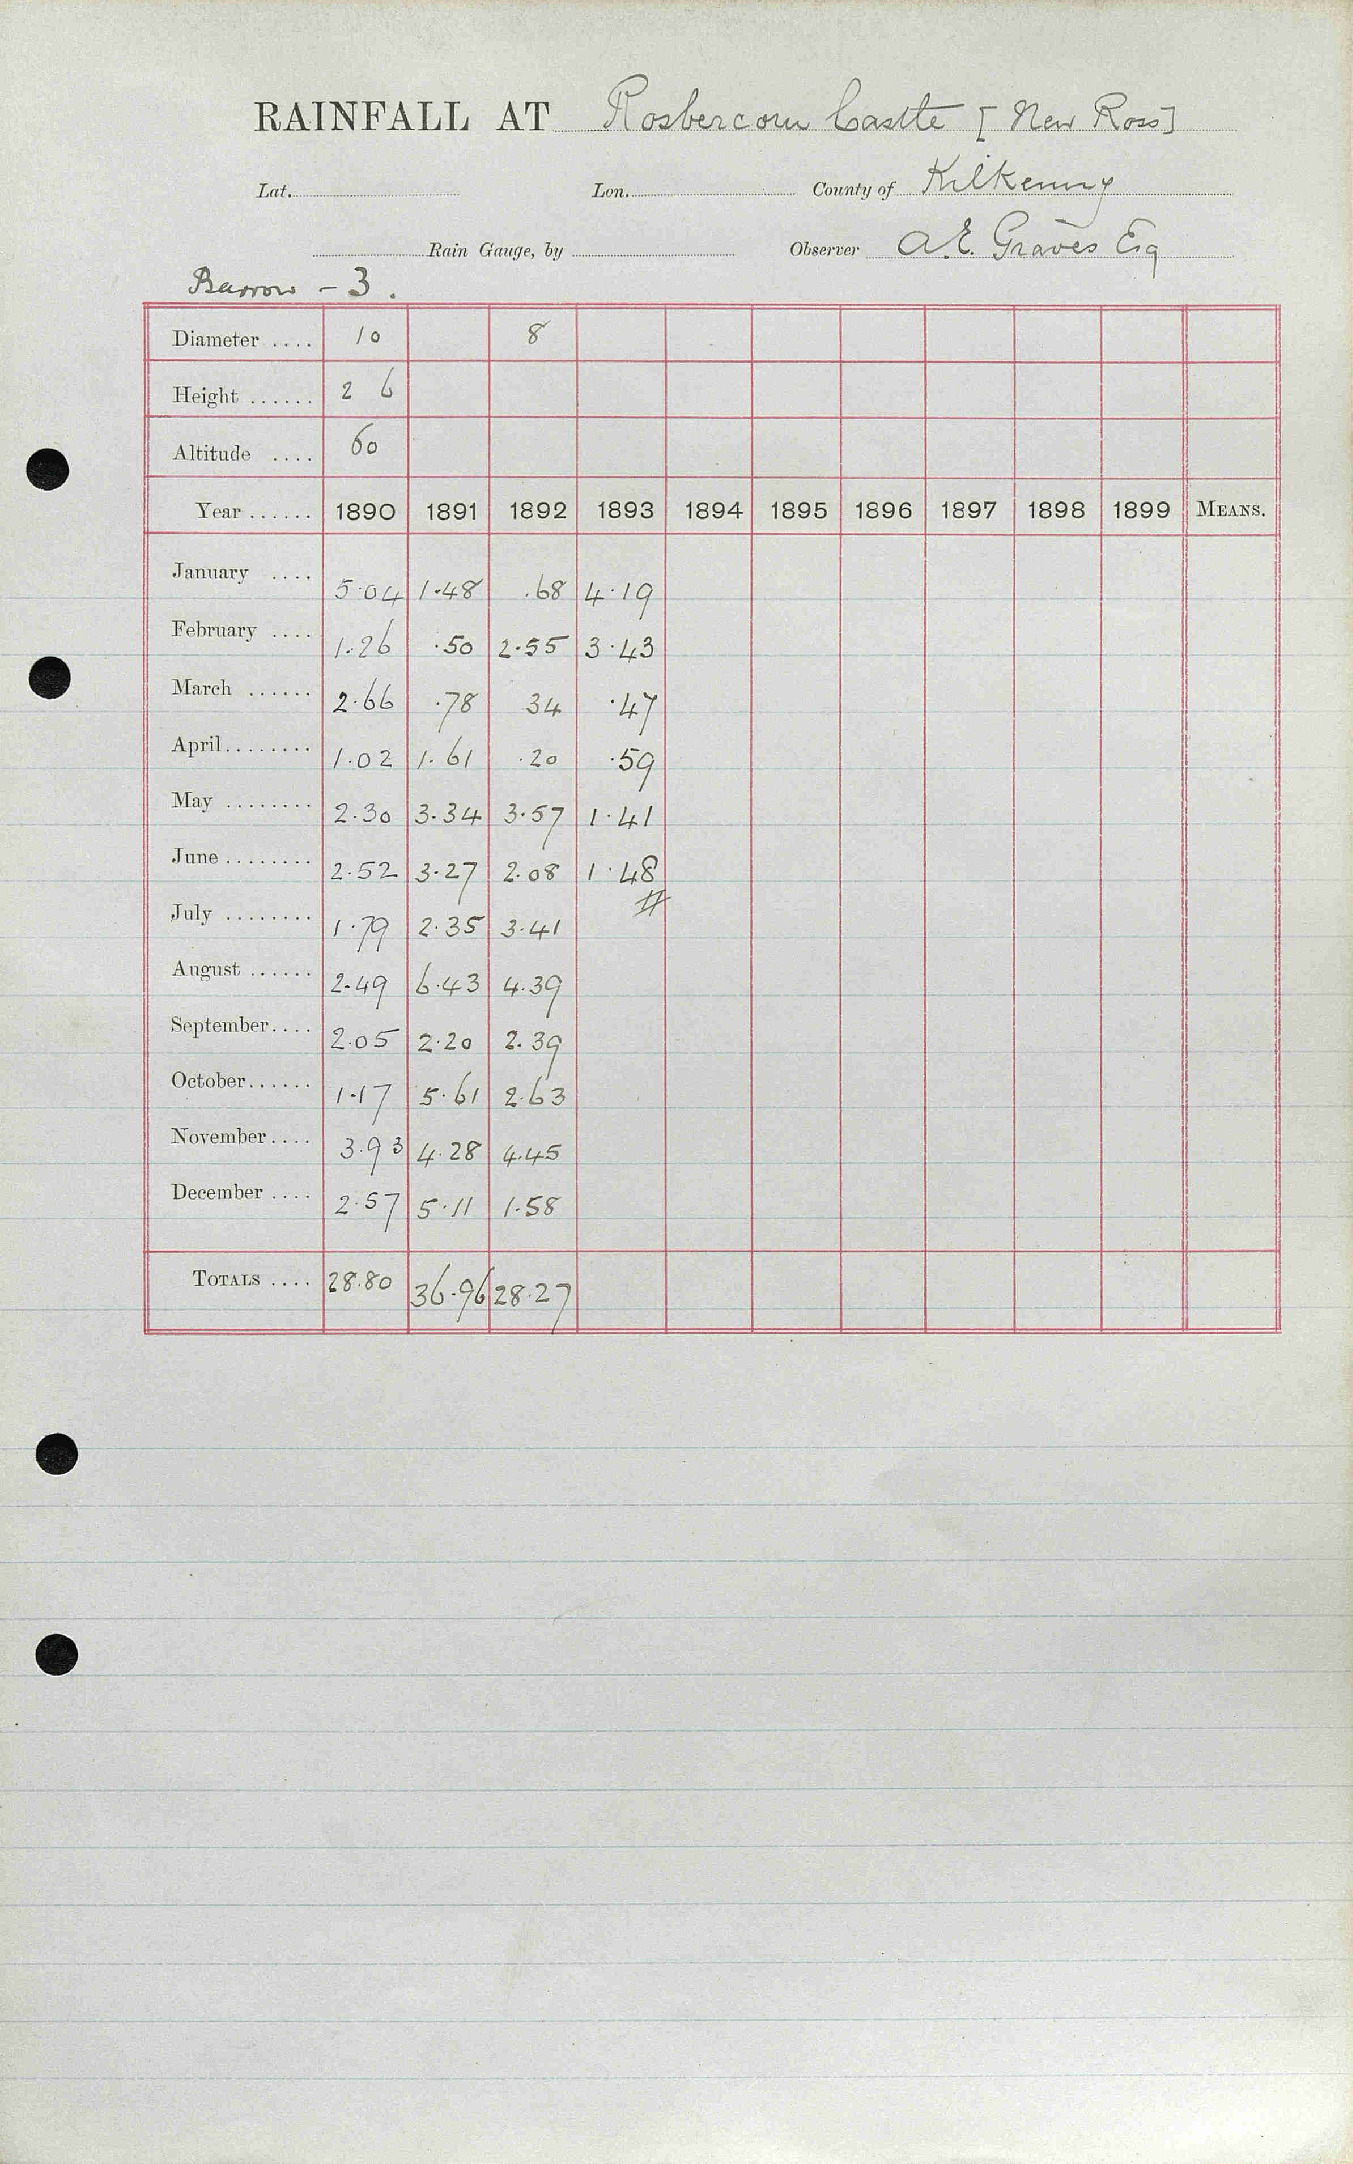 RAINFALL AT Rosbercon Castle [New Ross]
Lat. Lon. County of Kilkenny
Rain Gauge, by Observer A.E. Graves Esq
Barrow - 3.
Diameter .... 10 8
Height ...... 2 6
Altitude .... 60
Year ...... 1890 1891 1892 1893 1894 1895 1896 1897 1898 1899 MEANS.
January .... 5.04 1.48 .68 4.19
February .... 1.26 .50 2.55 3.43
March ...... 2.66 .78 34 .47
April........ 1.02 1.61 .20 .59
May ........ 2.30 3.34 3.57 1.41
June ........ 2.52 3.27 2.08 1.48
July ........ 1.79 2.35 3.41 #
August ...... 2.49 6.43 4.39
September.... 2.05 2.20 2.39
October...... 1.17 5.61 2.63
November.... 3.93 4.28 4.45
December .... 2.57 5.11 1.58
TOTALS .... 28.80 36.96 28.27